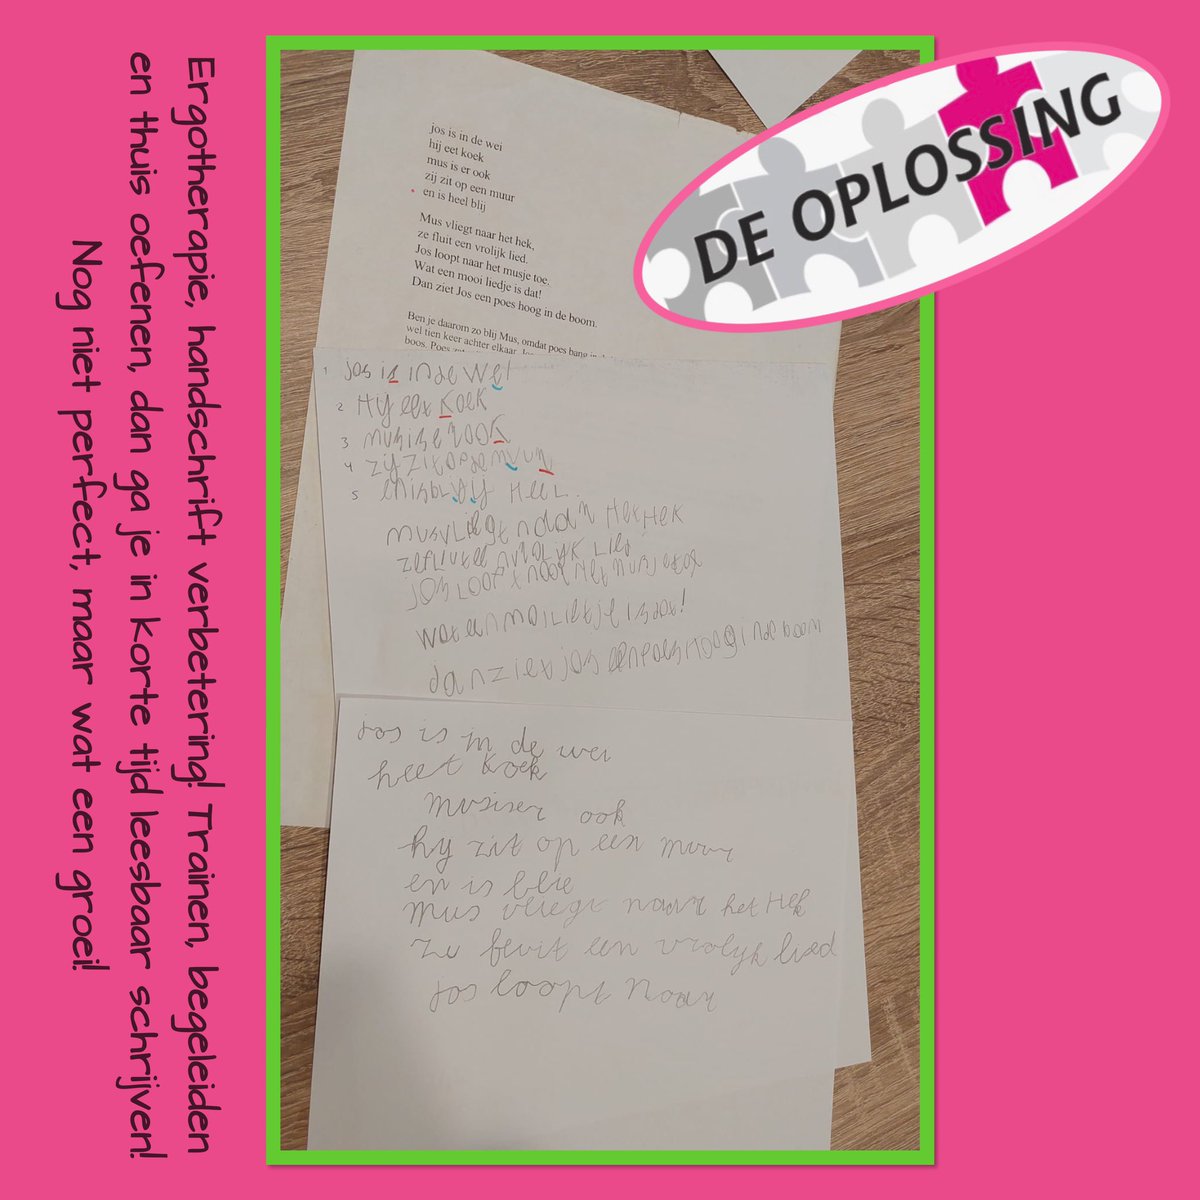 Ergotherapie, handschrift verbetering! Trainen, begeleiden
en thuis oefenen, dan ga je in korte tijd leesbaar schrijven!
Nog niet perfect, maar wat een groei!
DE OPLOSSING
jos is in de wei
hij eet koek
mus is er ook
zij zit op een muur
en is heel blij
Mus vliegt naar het hek,
ze fluit een vrolijk lied.
Jos loopt naar het musje toe.
Wat een mooi liedje is dat!
Dan ziet Jos een poes hoog in de boom.
Ben je daarom zo blij Mus, omdat poes bang
wel tien keer achter elkaar.
boos. Poes
1 jos is in de wei
2 Hij eet koek
3 mus is er ook
4 zij zit op de muur
5 en is blij Heel.
mus vliegt naar Het Hek
ze fluit een vrolyk lied
jos loopt naar Het musje toe
wat een moi lietje is dat!
dan ziet jos een poes Hoog in de boom
jos is in de wei
heet koek
musiser ook
hy zit op een muur
en is blie
mus vliegt naar het Hek
ze fluit een vrolyk lied
jos loopt naar